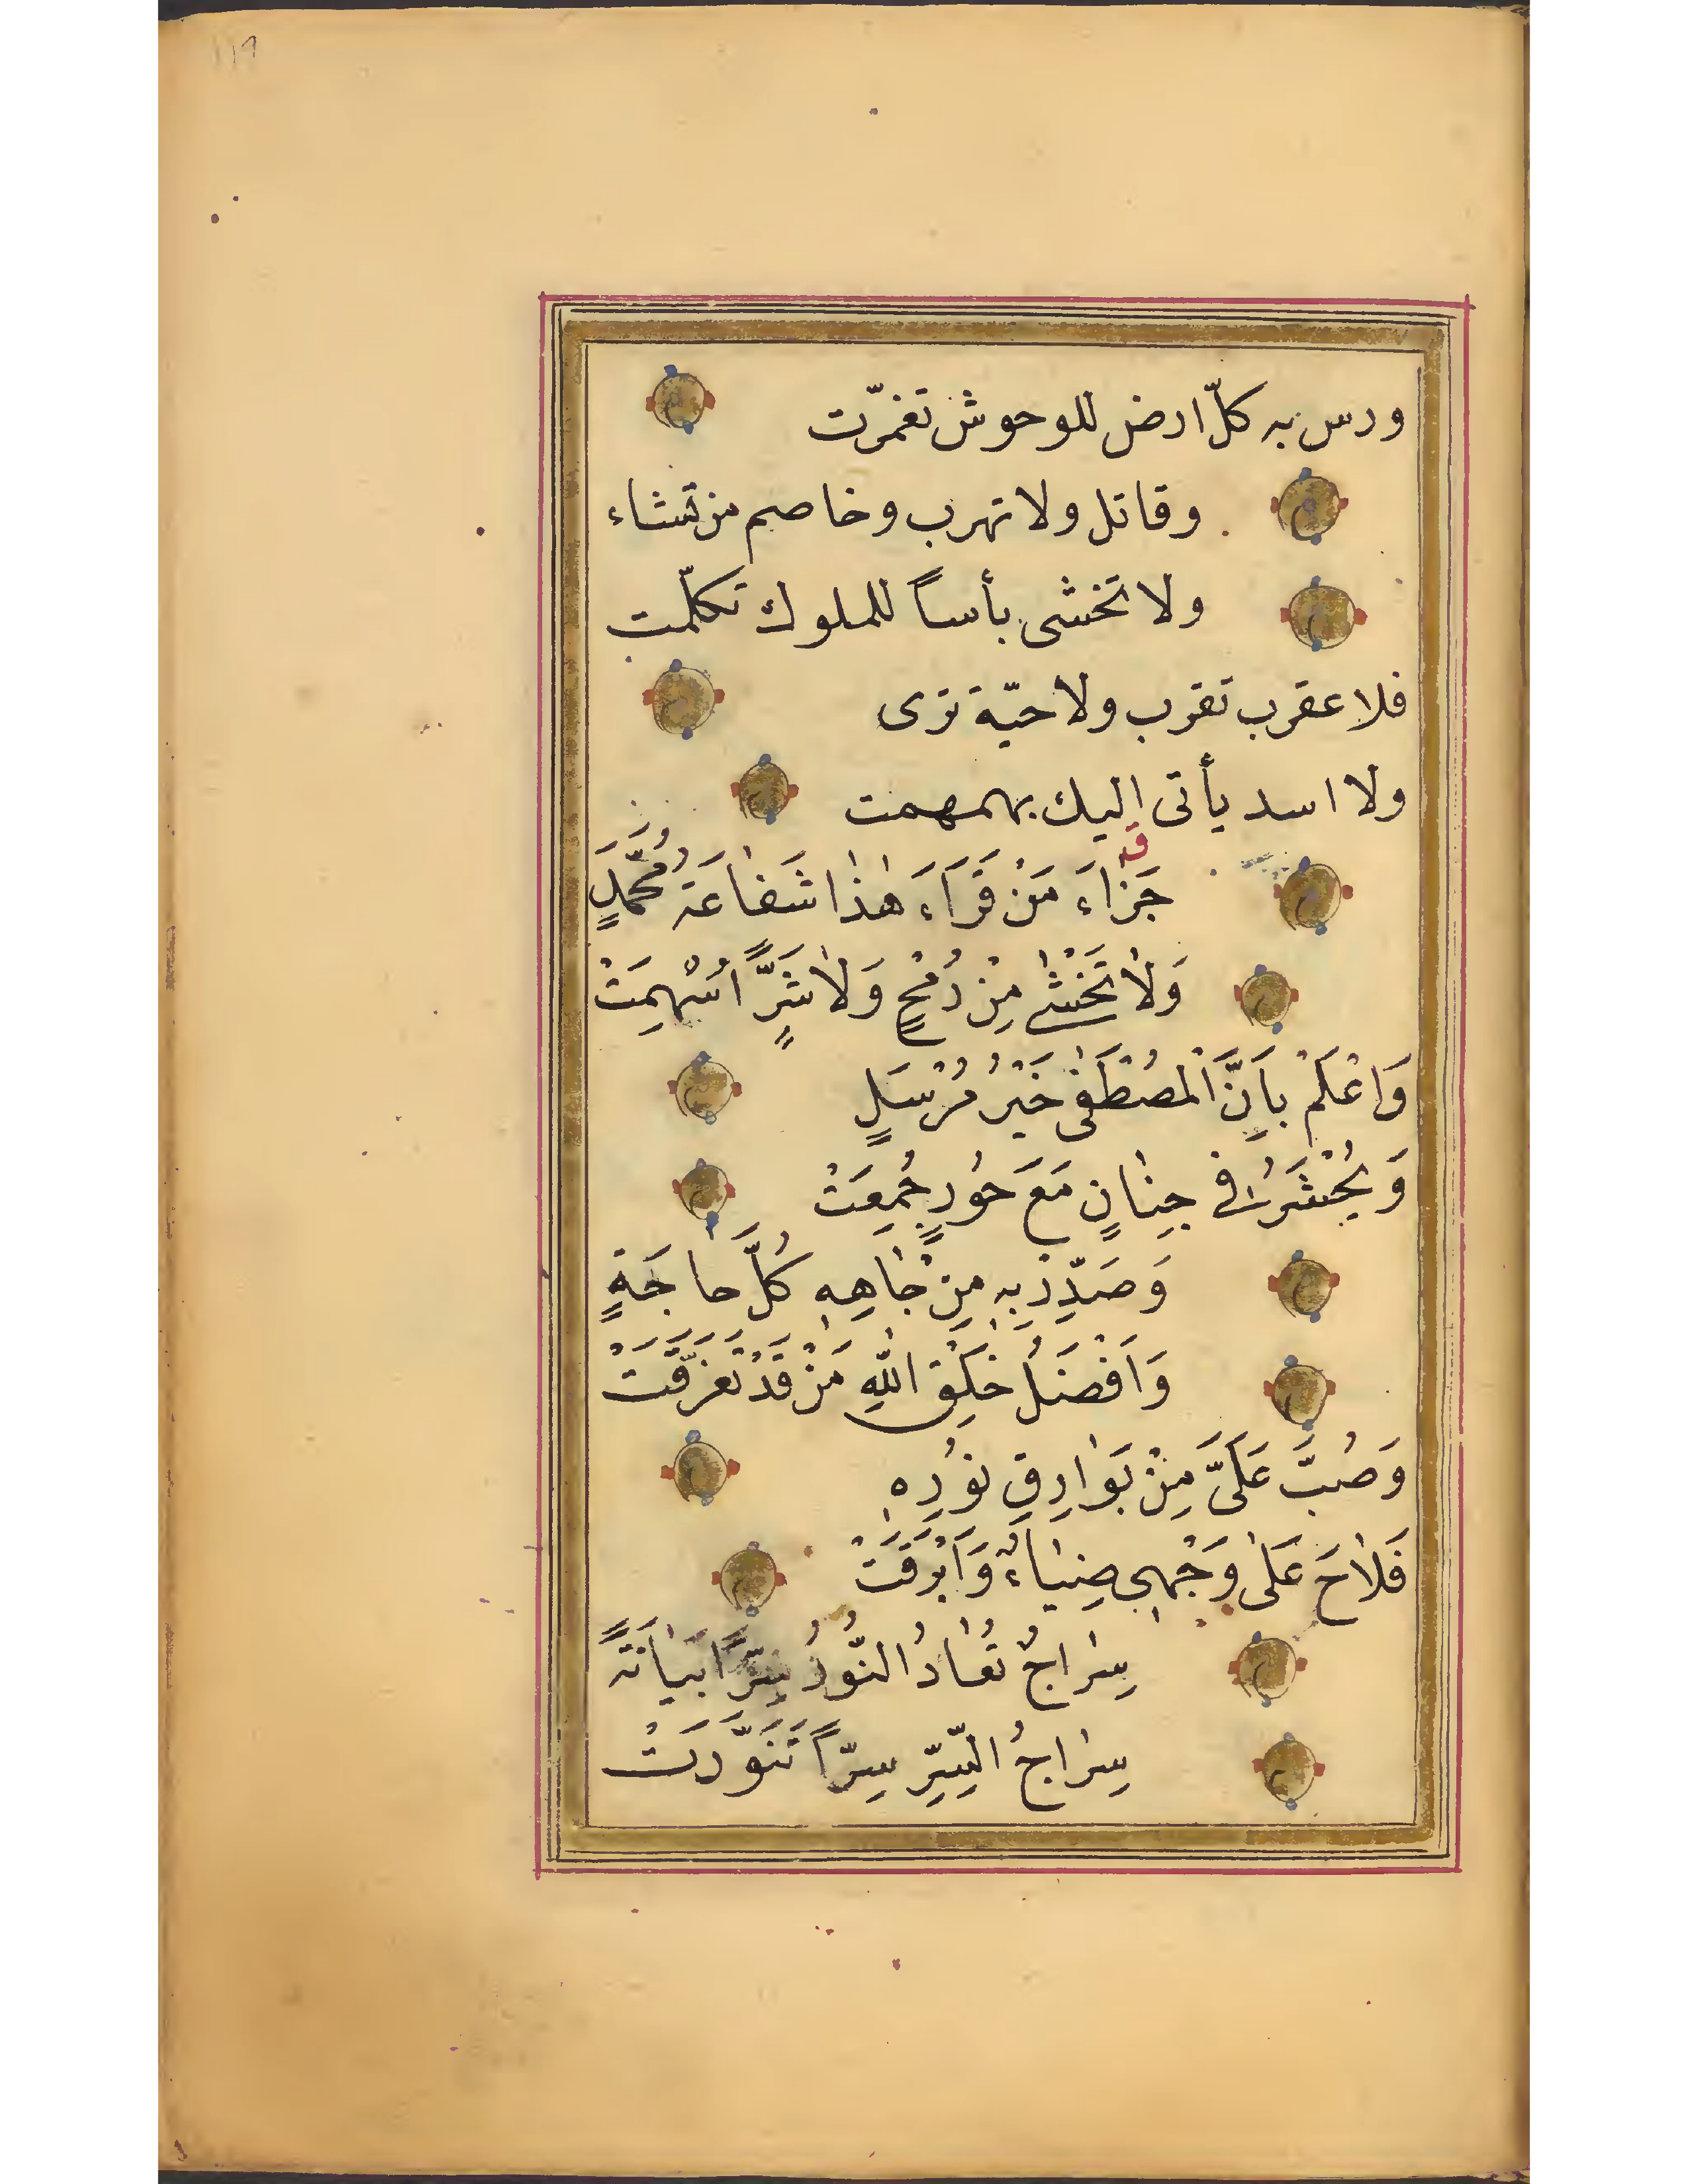 ١١٩
ودس به كلّ ارض للوحوش تغمّرت
وقاتل ولا تهرب وخاصم من تشاء
ولا تخشى بأساً للملوك تكلّمت
فلا عقرب تقرب ولا حيّة ترى
ولا اسد يأتى اليك بهمهمت
جَزاءَ مَنْ قَرَاءَ هٰذا شَفاعَة مُحَمَّدٍ
وَلا تَخْشٰى مِنْ رُمْحٍ وَلا شَرٍّ اسْهِمَتْ
وَاعْلَمْ بِاَنَّ الْمُصْطَفٰى خَيْرُ مُرْسَلٍ
وَيُحْشَرُ فى جِنانٍ مَعَ حُورٍ جُمِعَتْ
وَصَدِّرْ بِه مِنْ جاهِهِ كُلَّ حاجَةٍ
وَاَفْضَلُ خَلْقِ اللهِ مَنْ قَدْ تَعَرَّفَتْ
وَصُبَّ عَلَىَّ مِنْ بَوارِقِ نُورِهِ
فَلاحَ عَلٰى وَجْهِى ضِياءٌ وَاَبْرَقَتْ
سِراجٌ تُقادُ النُّورُ سِرًّا بَيانَةً
سِراجُ السِّرِّ سِرّاً تَنَوَّرَتْ